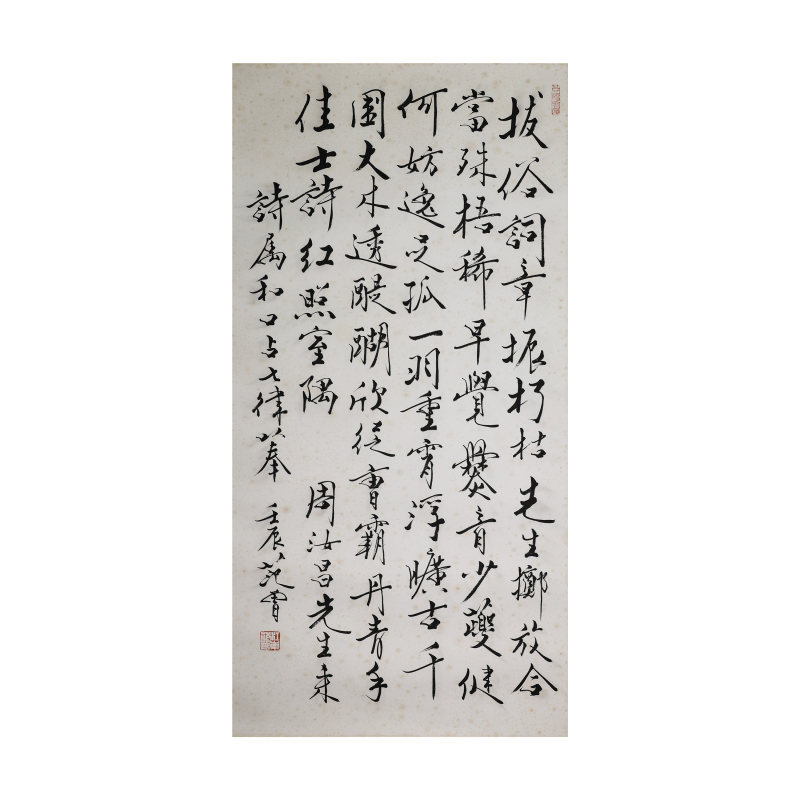 拔俗詞章振朽枯先生擲放合
當殊梧稀早覺爨音少夔健
何妨逸足孤一羽重霄浮曠古千
圍大木透醍醐欣從曹霸丹青手
佳士詩紅照室隅 周汝昌先生來
詩属和口占七律以奉 壬辰 范曾